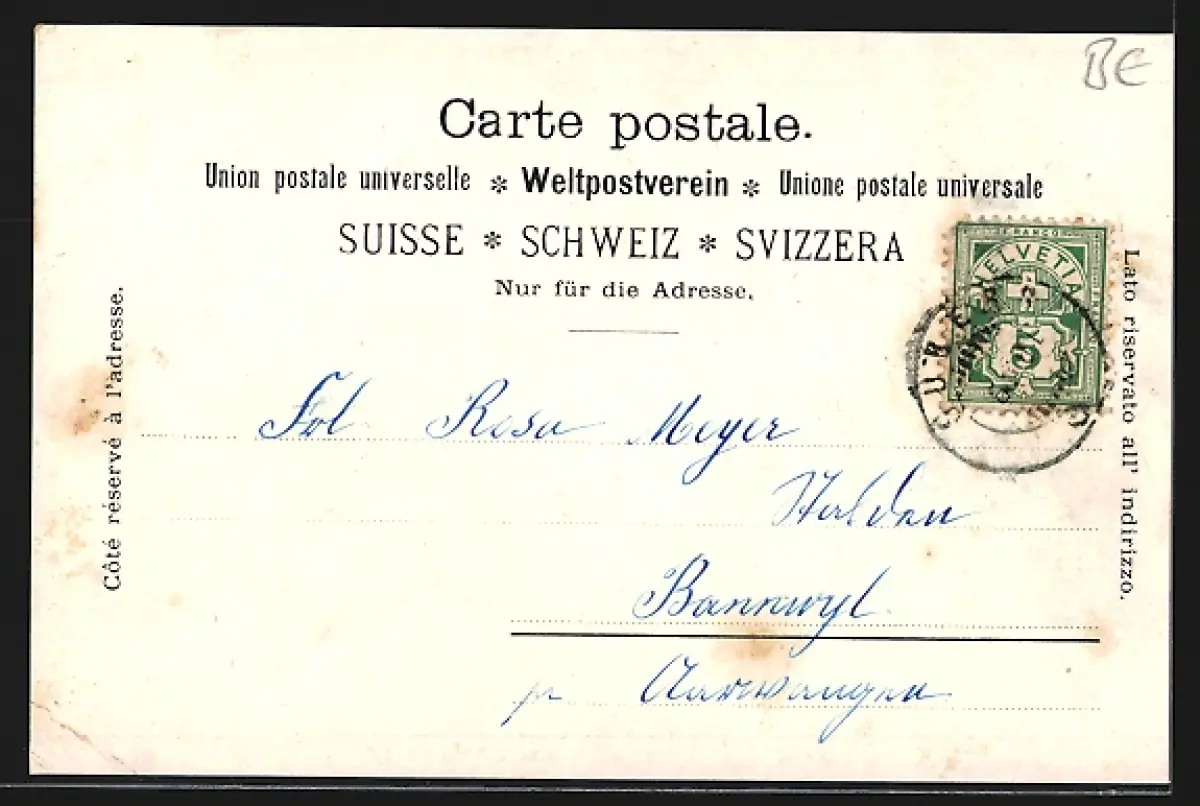 BE
Carte postale.
Union postale universelle * Weltpostverein * Unione postale universale
SUISSE * SCHWEIZ * SVIZZERA
Nur für die Adresse.
Côté réservé à l'adresse.
Lato riservato all' indirizzo.
FRANCO
HELVETIA
5
Frl Rosa Meyer
Halden
Bannwyl
pr Aarwangen